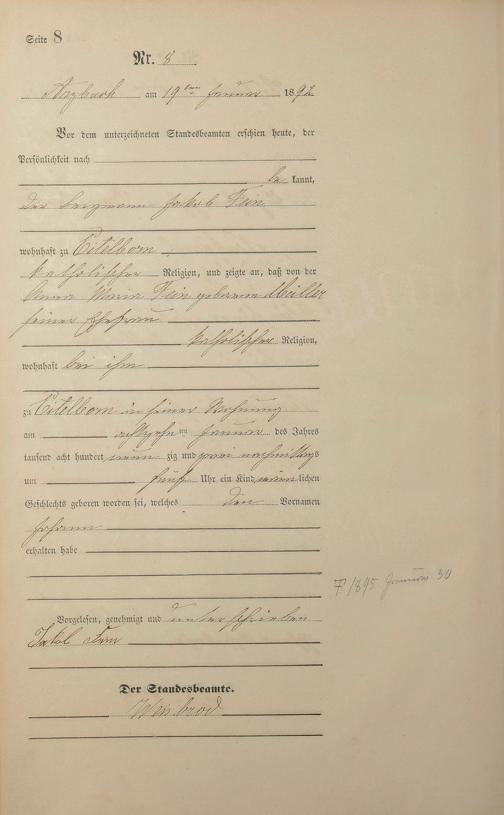 Seite 8
Nr. 8
Arzbach am 19ten Januar 1892
Vor dem unterzeichneten Standesbeamten erschien heute, der
Persönlichkeit nach
be kannt,
der Bergmann Jakob Fein
wohnhaft zu Eitelborn
katholischer Religion, und zeigte an, daß von der
Anna Maria Fein geborene Müller
seiner Ehefrau
katholischer Religion,
wohnhaft bei ihm
zu Eitelborn in seiner Wohnung
am achtzehnten Januar des Jahres
tausend acht hundert neun zig und zwei nachmittags
um fünf Uhr ein Kind männlichen
Geschlechts geboren worden sei, welches den Vornamen
Johann
erhalten habe
† 1895 Januar 30
Vorgelesen, genehmigt und unterschrieben
Jakob Fein
Der Standesbeamte.
Weinbrod